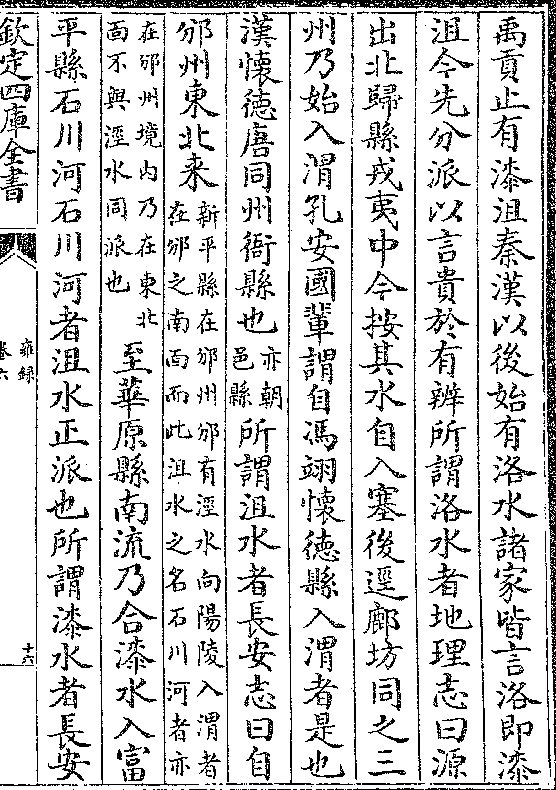 禹貢止有漆沮秦漢以後始有洛水諸家皆言洛即漆
沮今先分派以言貴於有辨所謂洛水者地理志曰源
出北歸縣戎夷中今按其水自入塞後逕鄜坊同之三
州乃始入渭孔安國輩謂自馮翊懷德縣入渭者是也
漢懷德唐同州衙縣也亦朝邑縣所謂沮水者長安志曰自
邠州東北来新平縣在邠州邠有涇水向陽陵入渭者在邠之南面而此沮水之名石川河者亦
在邠州境内乃在東北面不與涇水同派也至華原縣南流乃合漆水入富
平縣石川河石川河者沮水正派也所謂漆水者長安
欽定四庫全書
雍録
卷六
十六